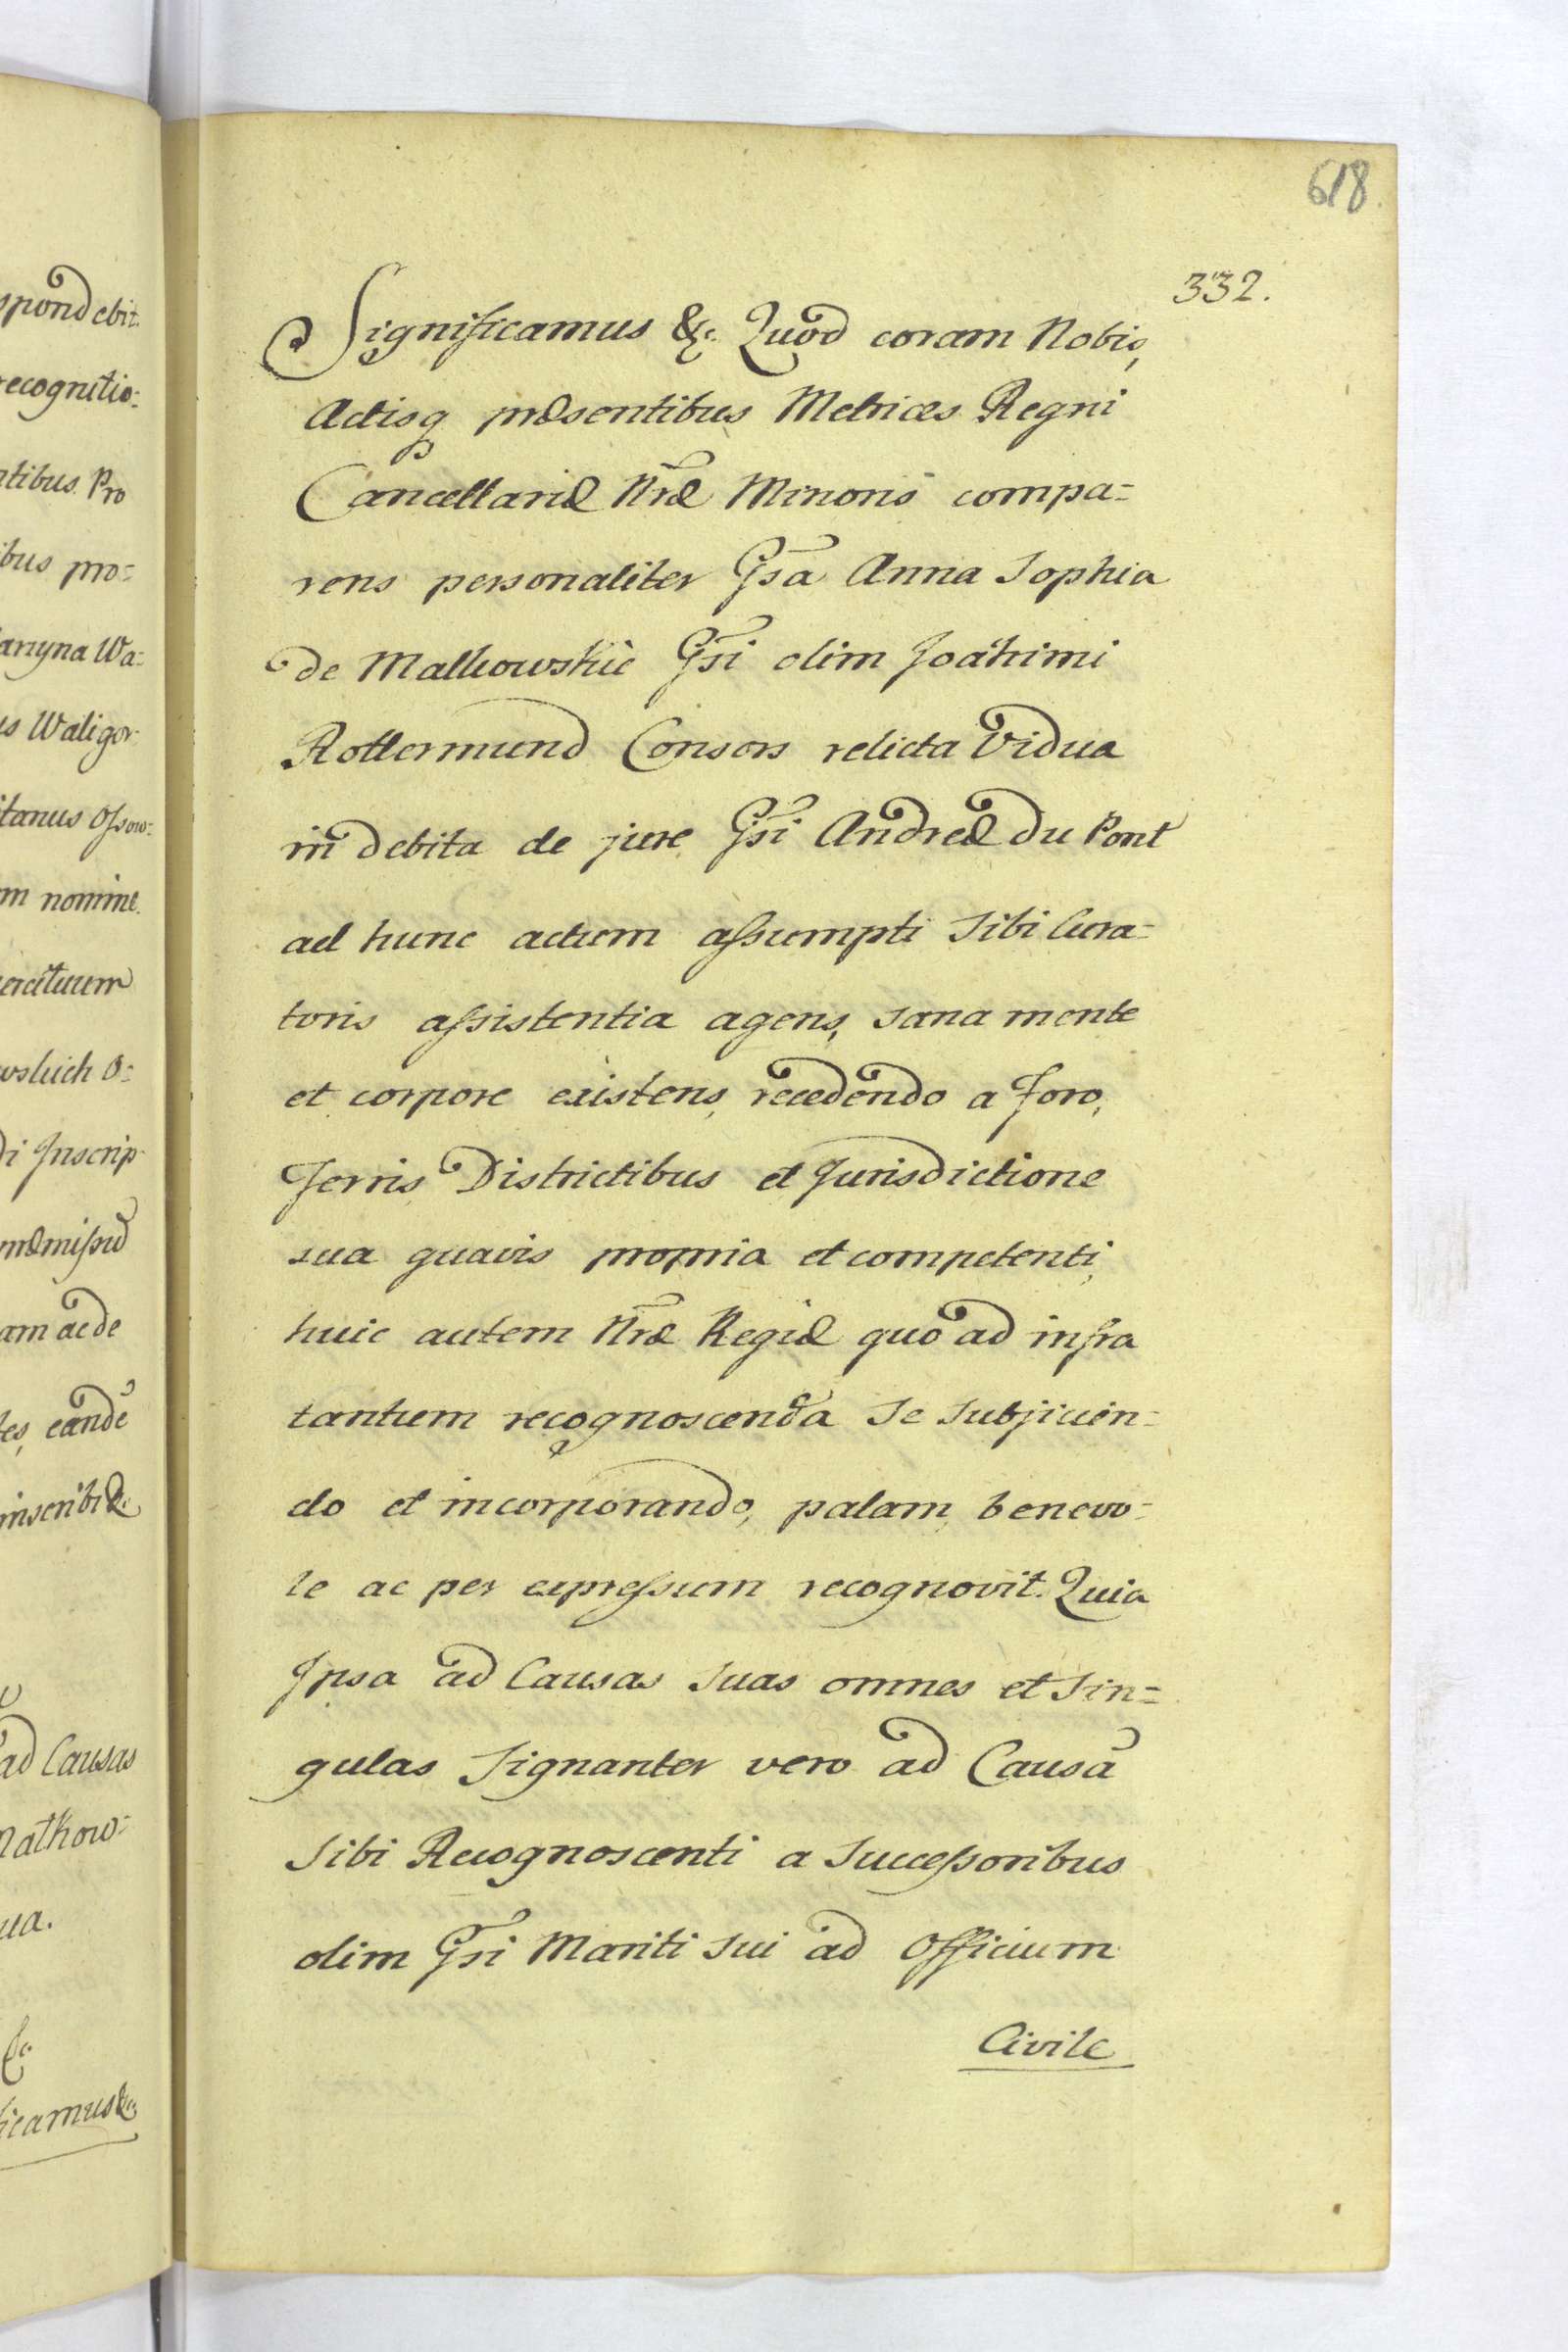 618.
332.
Significamus &c. Quod coram Nobis,
Actisq præsentibus Metrices Regni
Cancellariæ Nræ Minoris compa=
rens personaliter Gsa Anna Sophia
de Malkowskie Gsi olim Joachimi
Rottermund Consors relicta Vidua
in debita de jure Gsi Andreæ Du Pont
ad hunc actum assumpti sibi Cura=
toris assistentia agens, sana mente
et corpore existens, recedendo a foro,
Terris, Districtibus et Jurisdictione
sua quavis propria et competenti,
huic autem Nræ Regiæ quo ad infra
tantum recognoscenda se subjicien=
do et incorporando, palam, benevo=
le ac per expressum recognovit. Quia
Ipsa ad Causas suas omnes et sin=
gulas signanter vero ad Causã
sibi Recognoscenti a Successoribus
olim Gsi Mariti sui ad Officium
Civile
spondebit.
recognitio=
ntibus Pro
ibus pro=
aryna Wa=
us Waligor
itanus Ossow=
m nomine
ercituum
wskich O=
di Inscrip
præmissu
am ac de
tes, eandẽ
inscribi &c
ad Causas
Matkow=
ua.
&c
ficamus &c.